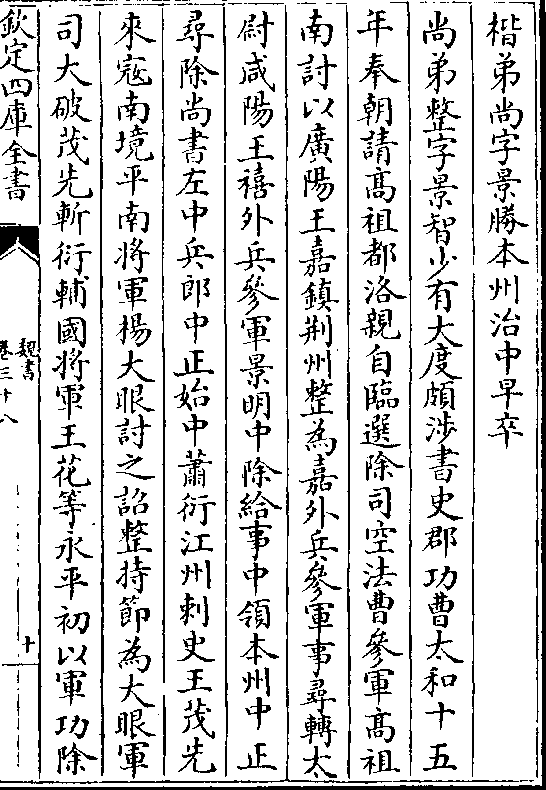 楷弟尚字景勝本州治中早卒
尚弟整字景智少有大度頗涉書史郡功曹太和十五
年奉朝請髙祖都洛親自臨選除司空法曹參軍髙祖
南討以廣陽王嘉鎮荆州整為嘉外兵參軍事尋轉太
尉咸陽王禧外兵參軍景明中除給事中領本州中正
尋除尚書左中兵郎中正始中蕭衍江州刺史王茂先
來寇南境平南將軍楊大眼討之詔整持節為大眼軍
司大破茂先斬衍輔國將軍王花等永平初以軍功除
欽定四庫全書
魏書
卷三十八
十